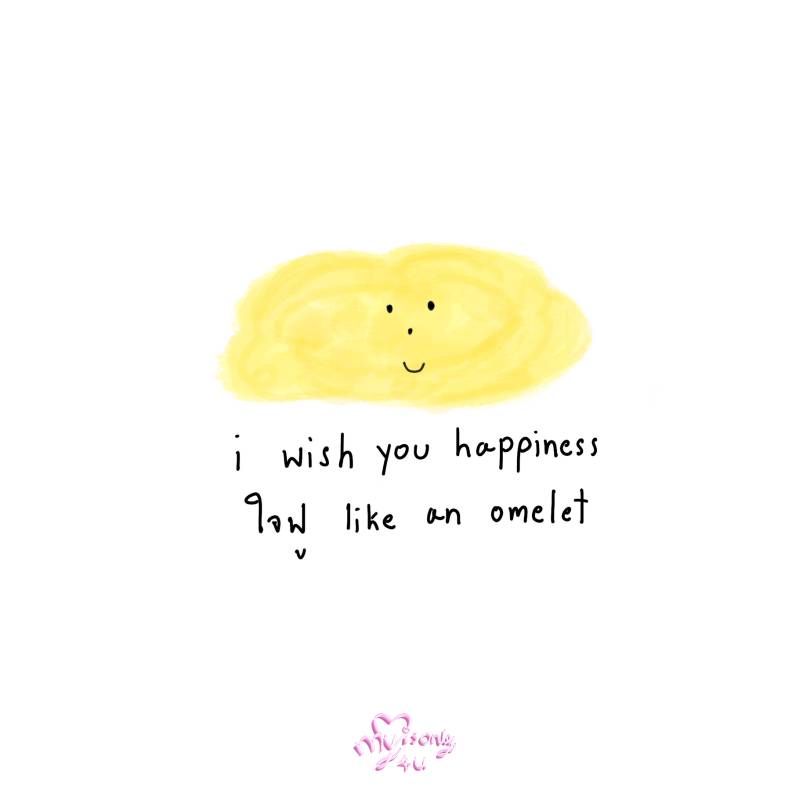 i wish you happiness
ใจฟู like an omelet
My is only
4U